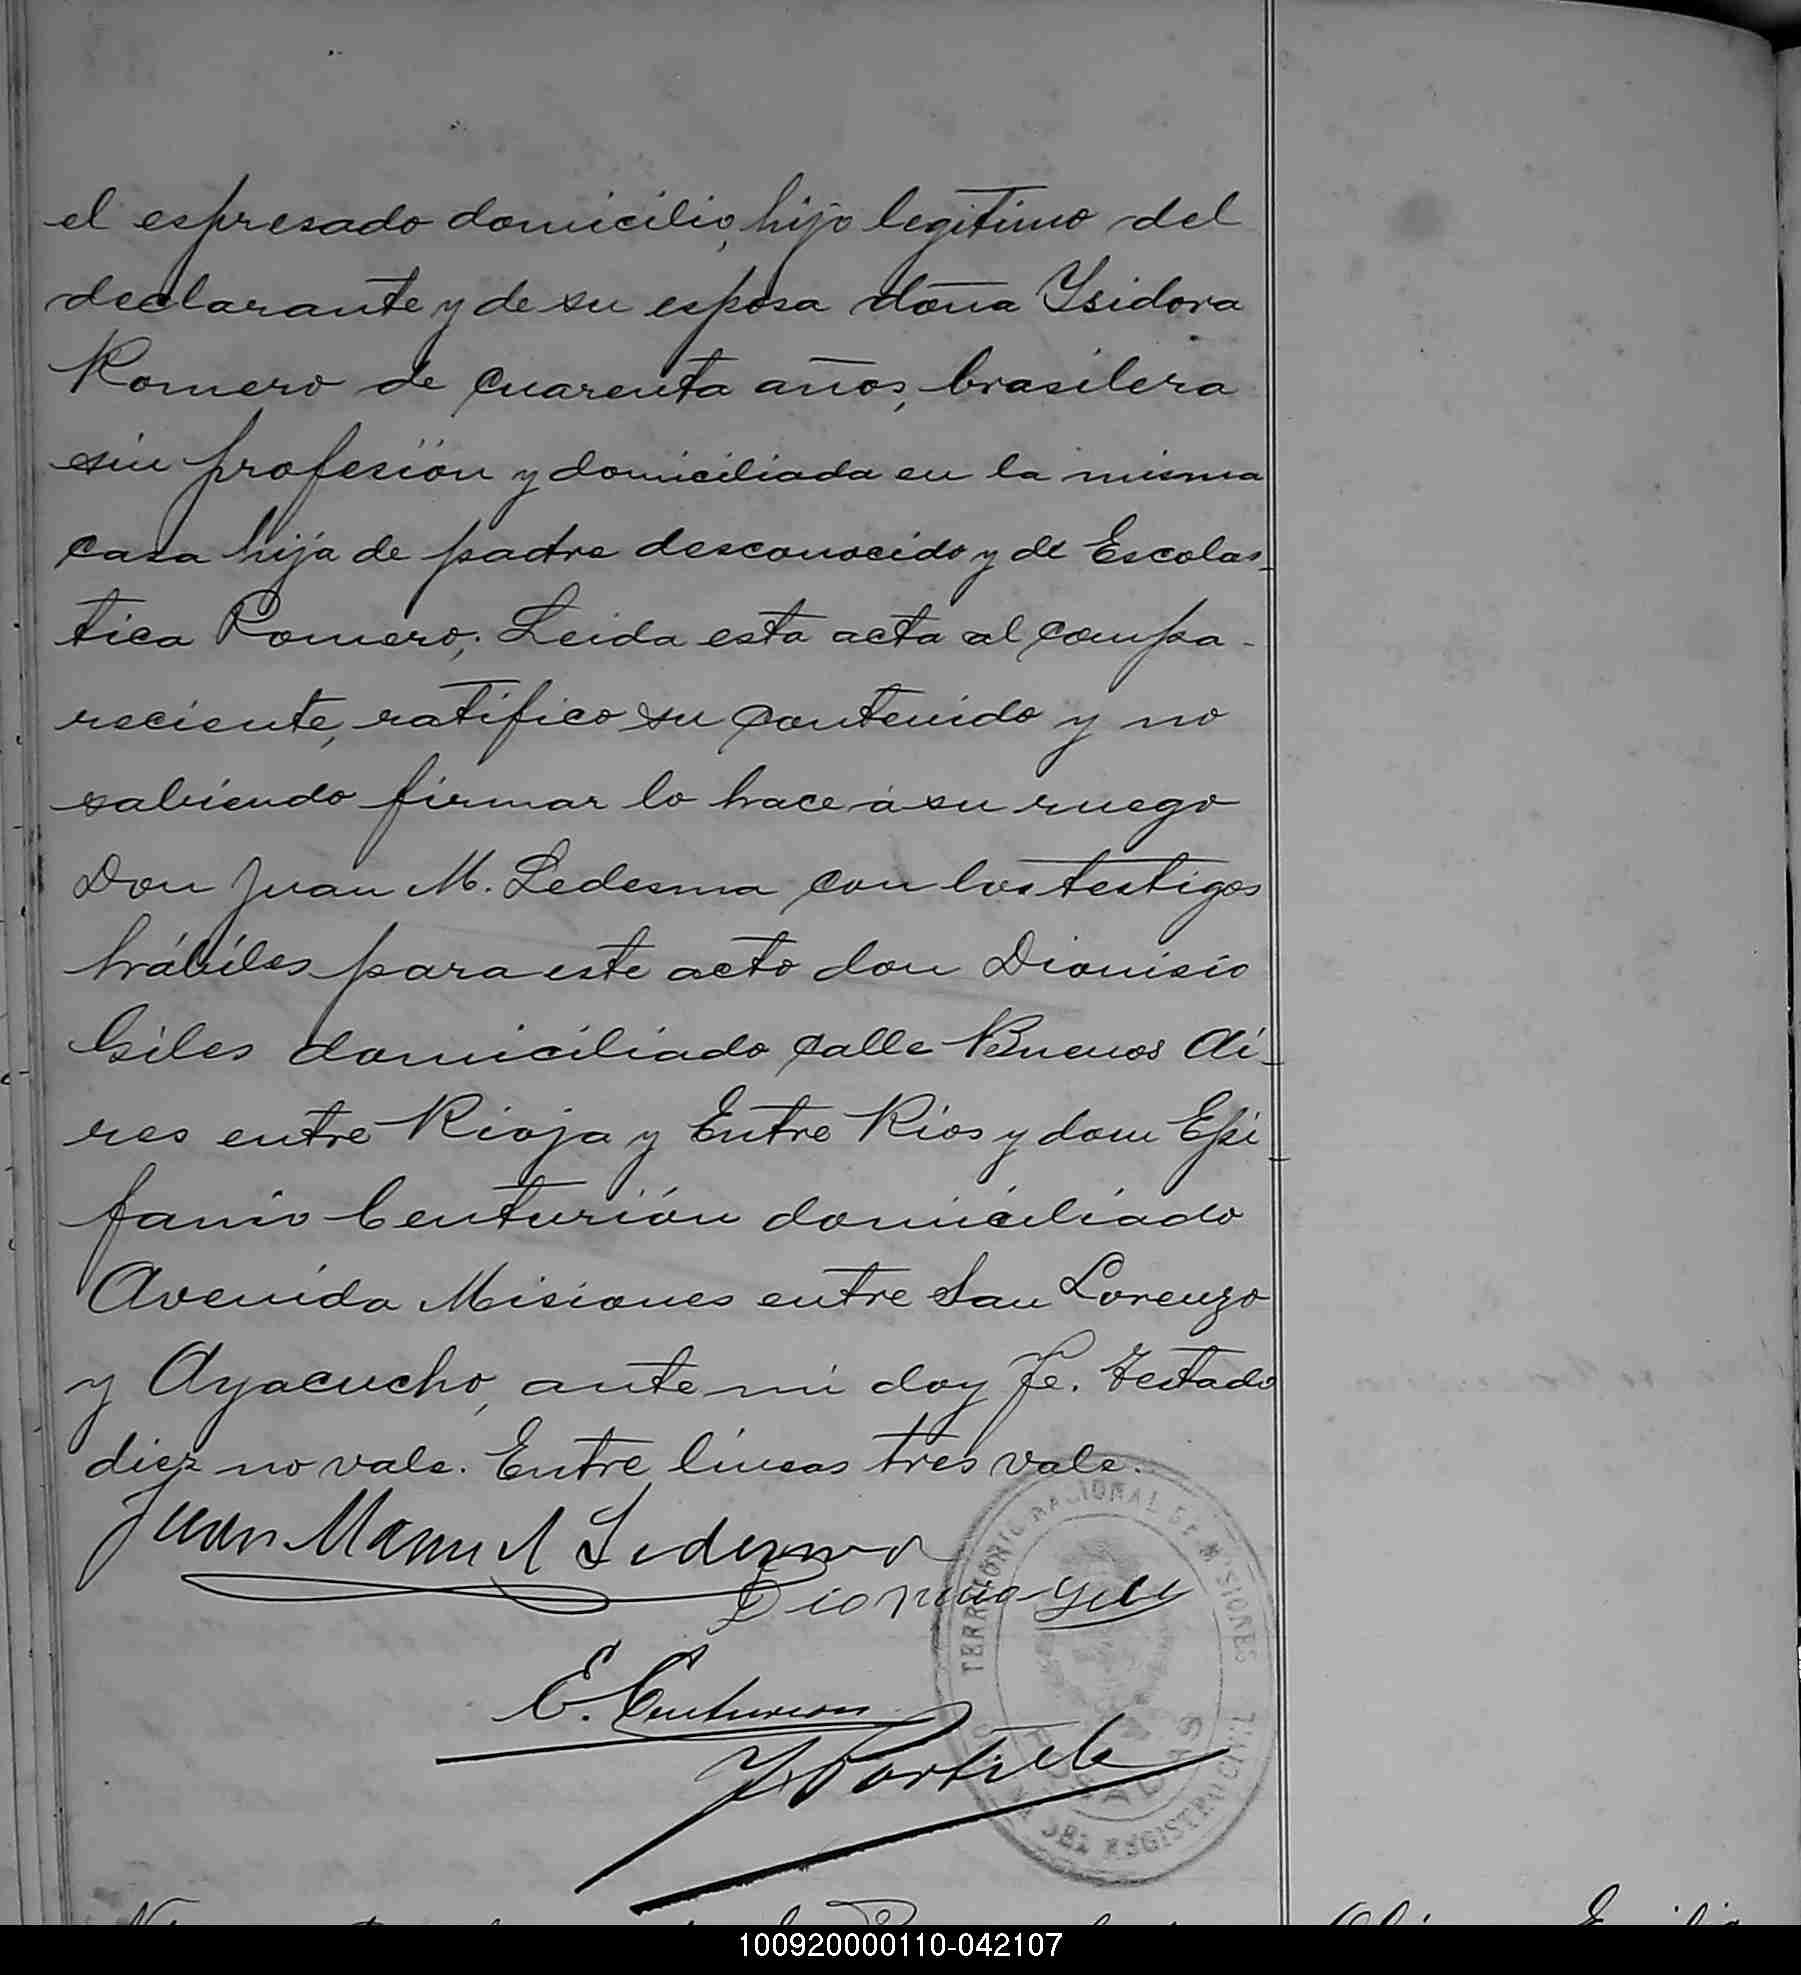 el espresado domicilio, hijo legitimo del
declarante y de su esposa doña Ysidora
Romero de cuarenta años, brasilera
sin profesión y domiciliada en la misma
casa hija de padre desconocido y de Escolas-
tica Romero; Leida esta acta al compa-
reciente, ratifico su contenido y no
sabiendo firmar lo hace á su ruego
Don Juan M. Ledesma con los testigos
hábiles para este acto don Dionisio
Giles domiciliado calle Buenos Ai-
res entre Rioja y Entre Rios y don Epi-
fanio Centurión domiciliado
Avenida Misiones entre San Lorenzo
y Ayacucho, ante mi doy fe. Testado
diez no vale. Entre lineas tres vale.
Juan Manuel Ledesma
Dionisio Giles
E. Centurion
TERRITORIO NACIONAL DE MISIONES
POSADAS
DEL REGISTRO CIVIL
100920000110-042107